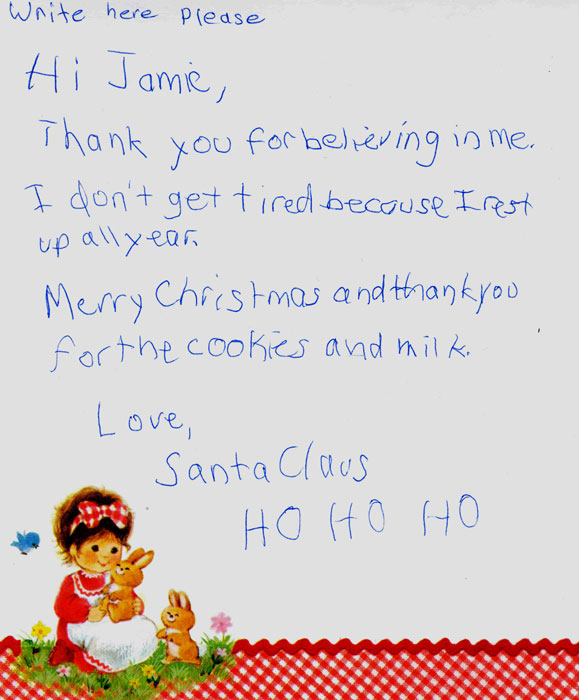 Write here please
Hi Jamie,
Thank you for believing in me.
I don't get tired because I rest
up all year.
Merry Christmas and thank you
for the cookies and milk.
Love,
Santa Claus
HO HO HO